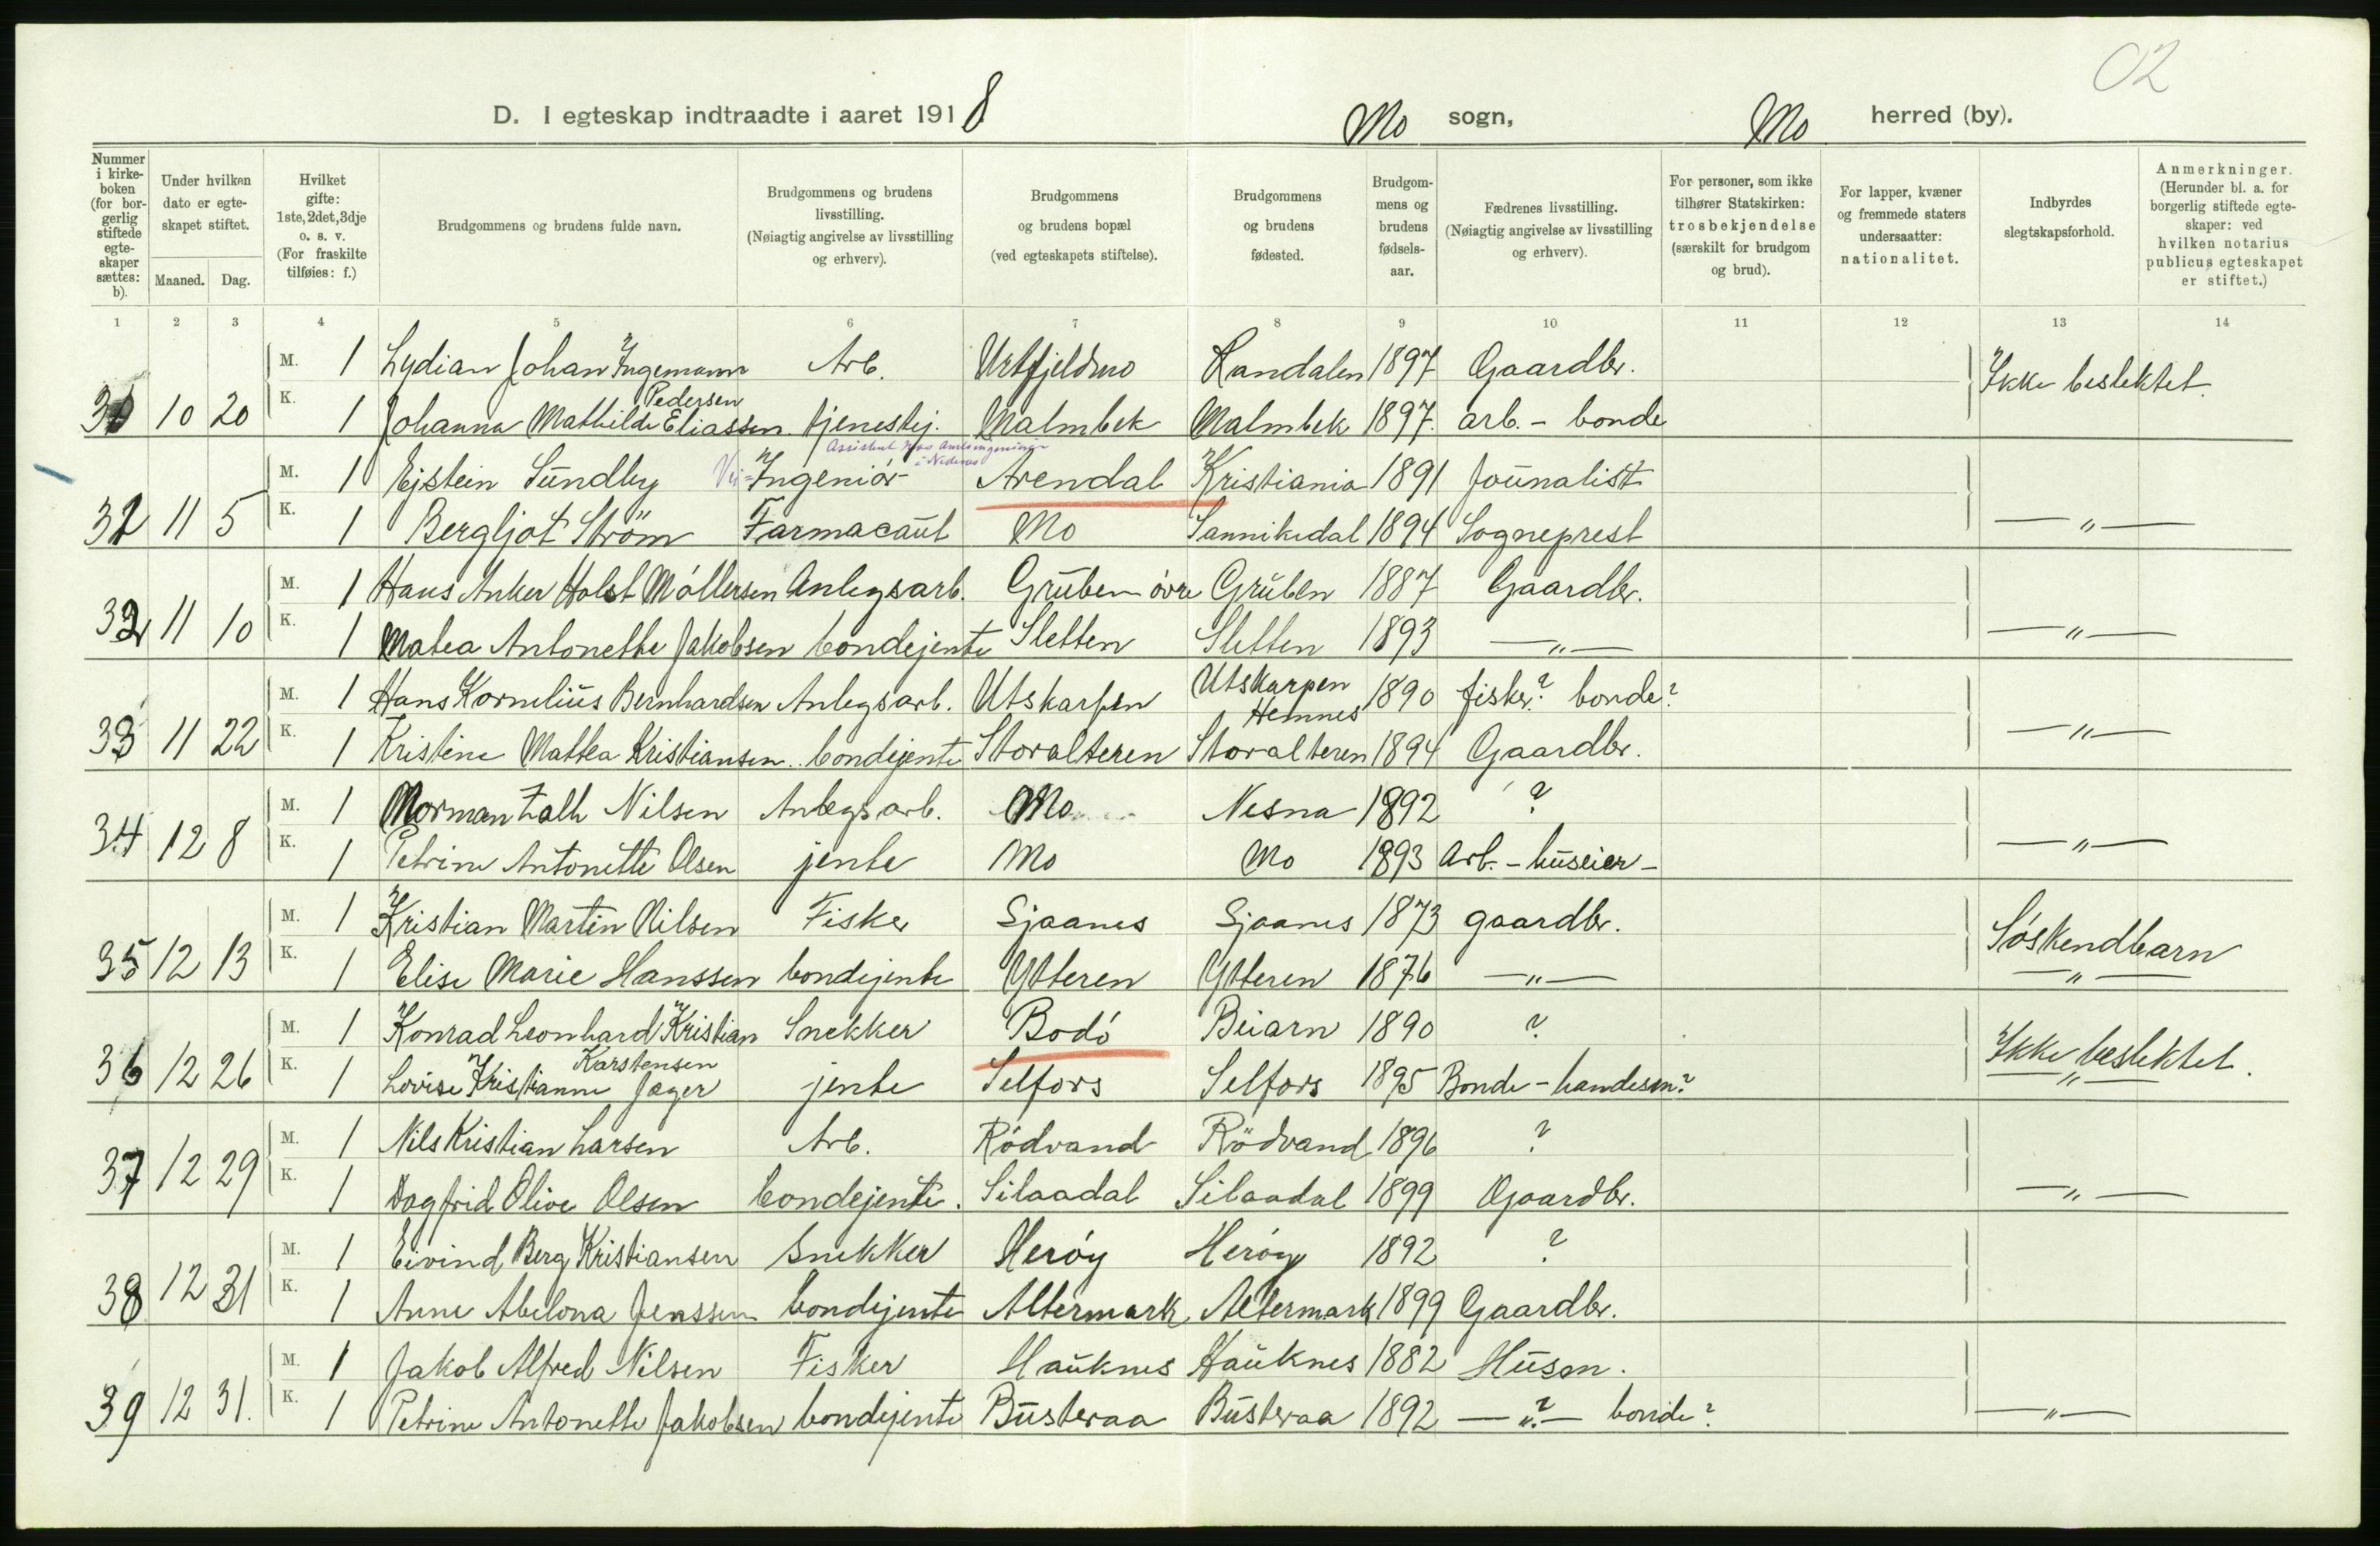 02
D. I egteskap indtraadte i aaret 1918 Mo sogn, Mo herred (by).
Nummer i kirke-boken (for bor-gerlig stiftede egte-skaper sættes: b).
Under hvilken dato er egte-skapet stiftet.
Maaned. Dag.
Hvilket gifte: 1ste, 2det, 3dje o. s. v. (For fraskilte tilføies: f.)
Brudgommens og brudens fulde navn.
Brudgommens og brudens livsstilling. (Nøiagtig angivelse av livsstilling og erhverv).
Brudgommens og brudens bopæl (ved egteskapets stiftelse).
Brudgommens og brudens fødested.
Brudgom-mens og brudens fødsels-aar.
Fædrenes livsstilling. (Nøiagtig angivelse av livsstilling og erhverv).
For personer, som ikke tilhører Statskirken: trosbekjendelse (særskilt for brudgom og brud).
For lapper, kvæner og fremmede staters undersaatter: nationalitet.
Indbyrdes slegtskapsforhold.
Anmerkninger. (Herunder bl. a. for borgerlig stiftede egte-skaper: ved hvilken notarius publicus egteskapet er stiftet.)
1 2 3 4 5 6 7 8 9 10 11 12 13 14
M. 1 Lydian Johan Ingemann Pedersen Arb. Urtfjeldmo Randalen 1897 Gaardbr. Ikke beslektet.
10 20 K. 1 Johanna Mathilde Eliassen tjenestej. Malmbek Malmbek 1897. arb. - bonde
Assistent hos Amtsingeniøren i Nedenes
M. 1 Ejstein Sundby Vei-Ingeniör Arendal Kristiania 1891 Jounalist
11 5 K. 1 Bergljot Ström Farmacaut Mo Sannikedal 1894 Sogneprest —"—
M. 1 Hans Anker Holst Möllersen Anlegsarb. Gruben övre Gruben 1887 Gaardbr.
32 11 10 K. 1 Matea Antonette Jakobsen bondejente Sletten Sletten 1893 —"— —"—
M. 1 Hans Kornelius Bernhardsen Anlegsarb. Utskarpen Utskarpen Hemnes 1890 fisker? bonde?
33 11 22 K. 1 Kristine Mattea Kristiansen bondejente Storalteren Storalteren 1894 Gaardbr. —"—
M. 1 Norman Nilsen Anlegsarb. Mo Nesna 1892 ?
34 12 8 K. 1 Petrine Antonette Olsen jente Mo Mo 1893 Arb. - huseier - —"—
M. 1 Kristian Martin Nilsen Fisker Sjaanes Sjaanes 1873 gaardbr. Söskendbarn
35 12 13 K. 1 Elise Marie Hanssen bondejente Ytteren Ytteren 1876 —"— —"—
M. 1 Konrad Leonhard Kristian Karstensen Snekker Bodö Beiarn 1890 ? Ikke beslektet.
36 12 26 K. 1 Lovise Kristianne Jæger jente Selfors Selfors 1895 Bonde - handesm? —"—
M. 1 Nils Kristian Larsen Arb. Rödvand Rödvand 1896 ?
37 12 29 K. 1 Dagfrid Olive Olsen bondejente. Silaadal Silaadal 1899 Gaardbr. —"—
M. 1 Eivind Berg Kristiansen Snekker Heröy Heröy 1892 ?
38 12 31 K. 1 Anne Abelona Jenssen bondejente Altermark Altermark 1899 Gaardbr.
M. 1 Jakob Alfred Nilsen Fisker Hauknes Hauknes 1882 Husm.
39 12 31. K. 1 Petrine Antonette Jakobsen bondejente Busteraa Busteraa 1892 —"?— bonde? —"—